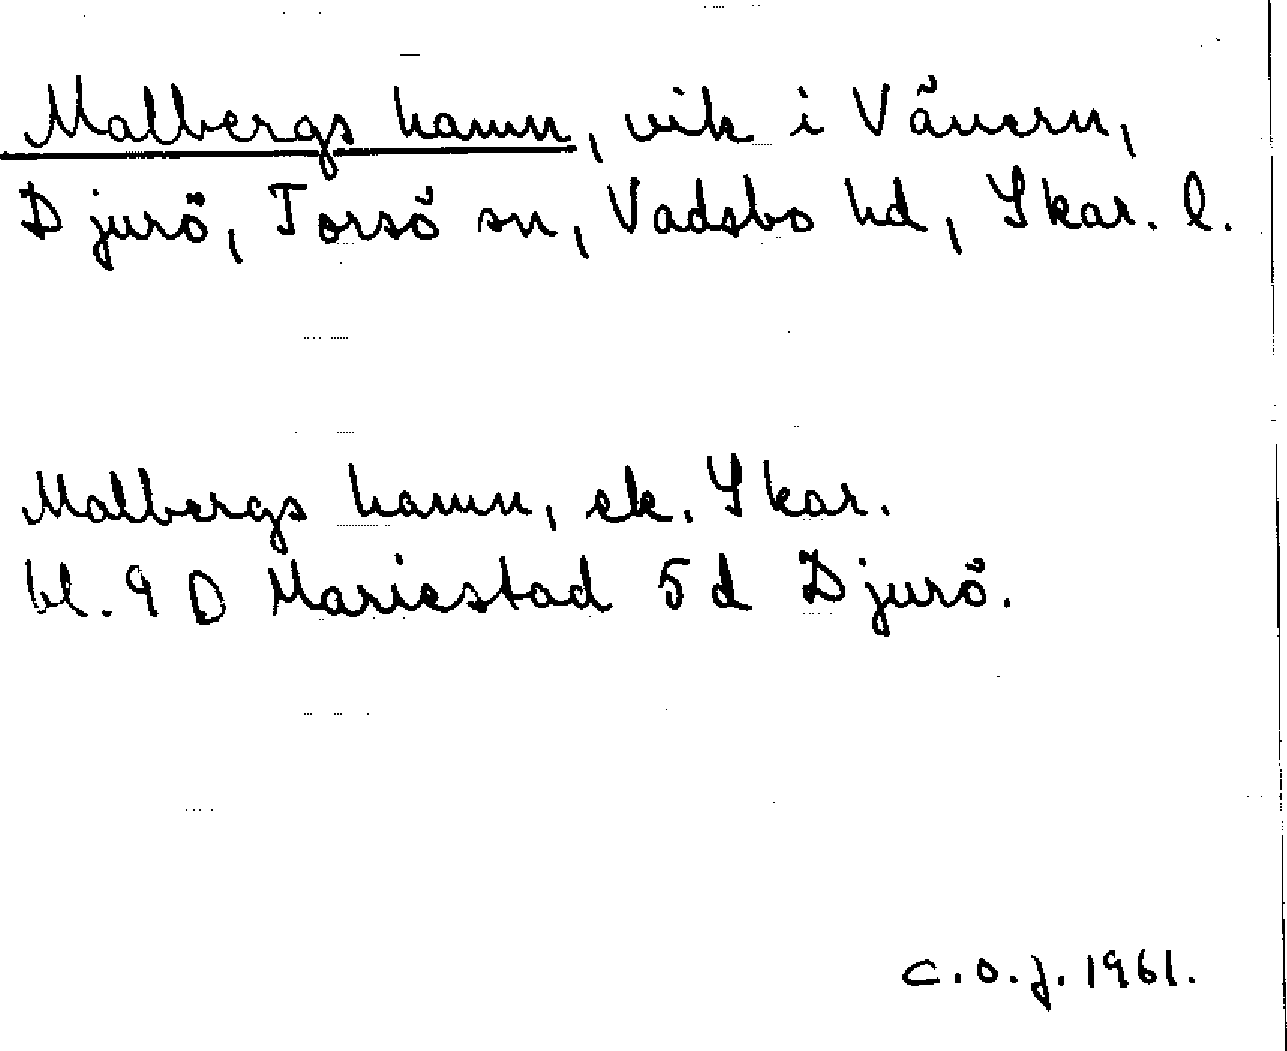 Malbergs hamn, vik i Vänern,
Djurö, Torsö sn, Vadsbo hd, Skar. l.
Malbergs hamn, ek. Skar.
bl. 9 D Mariestad 5 d Djurö.
C.O.J. 1961.